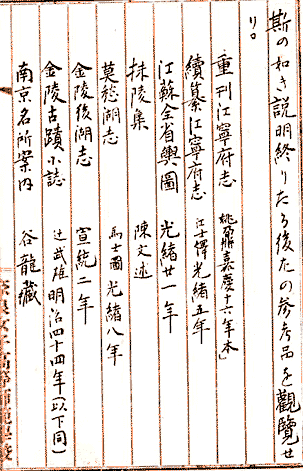 斯の如き説明終りたる後左の参考品を觀覽せ
り。
重刊江寧府志 姚鼐嘉慶十六年本
續纂江寧府志 江士鐸光緒五年
江蘇全省輿圖 光緒廿一年
秣陵集 陳文述
莫愁湖志 馬士圖光緒八年
金陵後湖志 宣統二年
金陵古蹟小誌 辻武雄明治四十四年(以下同)
南京名所案内 谷龍藏